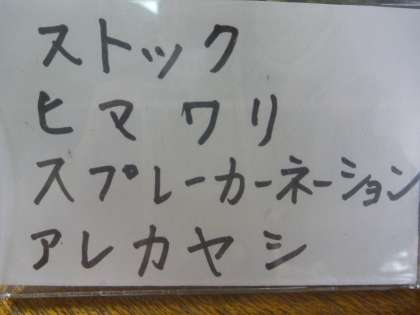 ストック
ヒマワリ
スプレーカーネーション
アレカヤシ